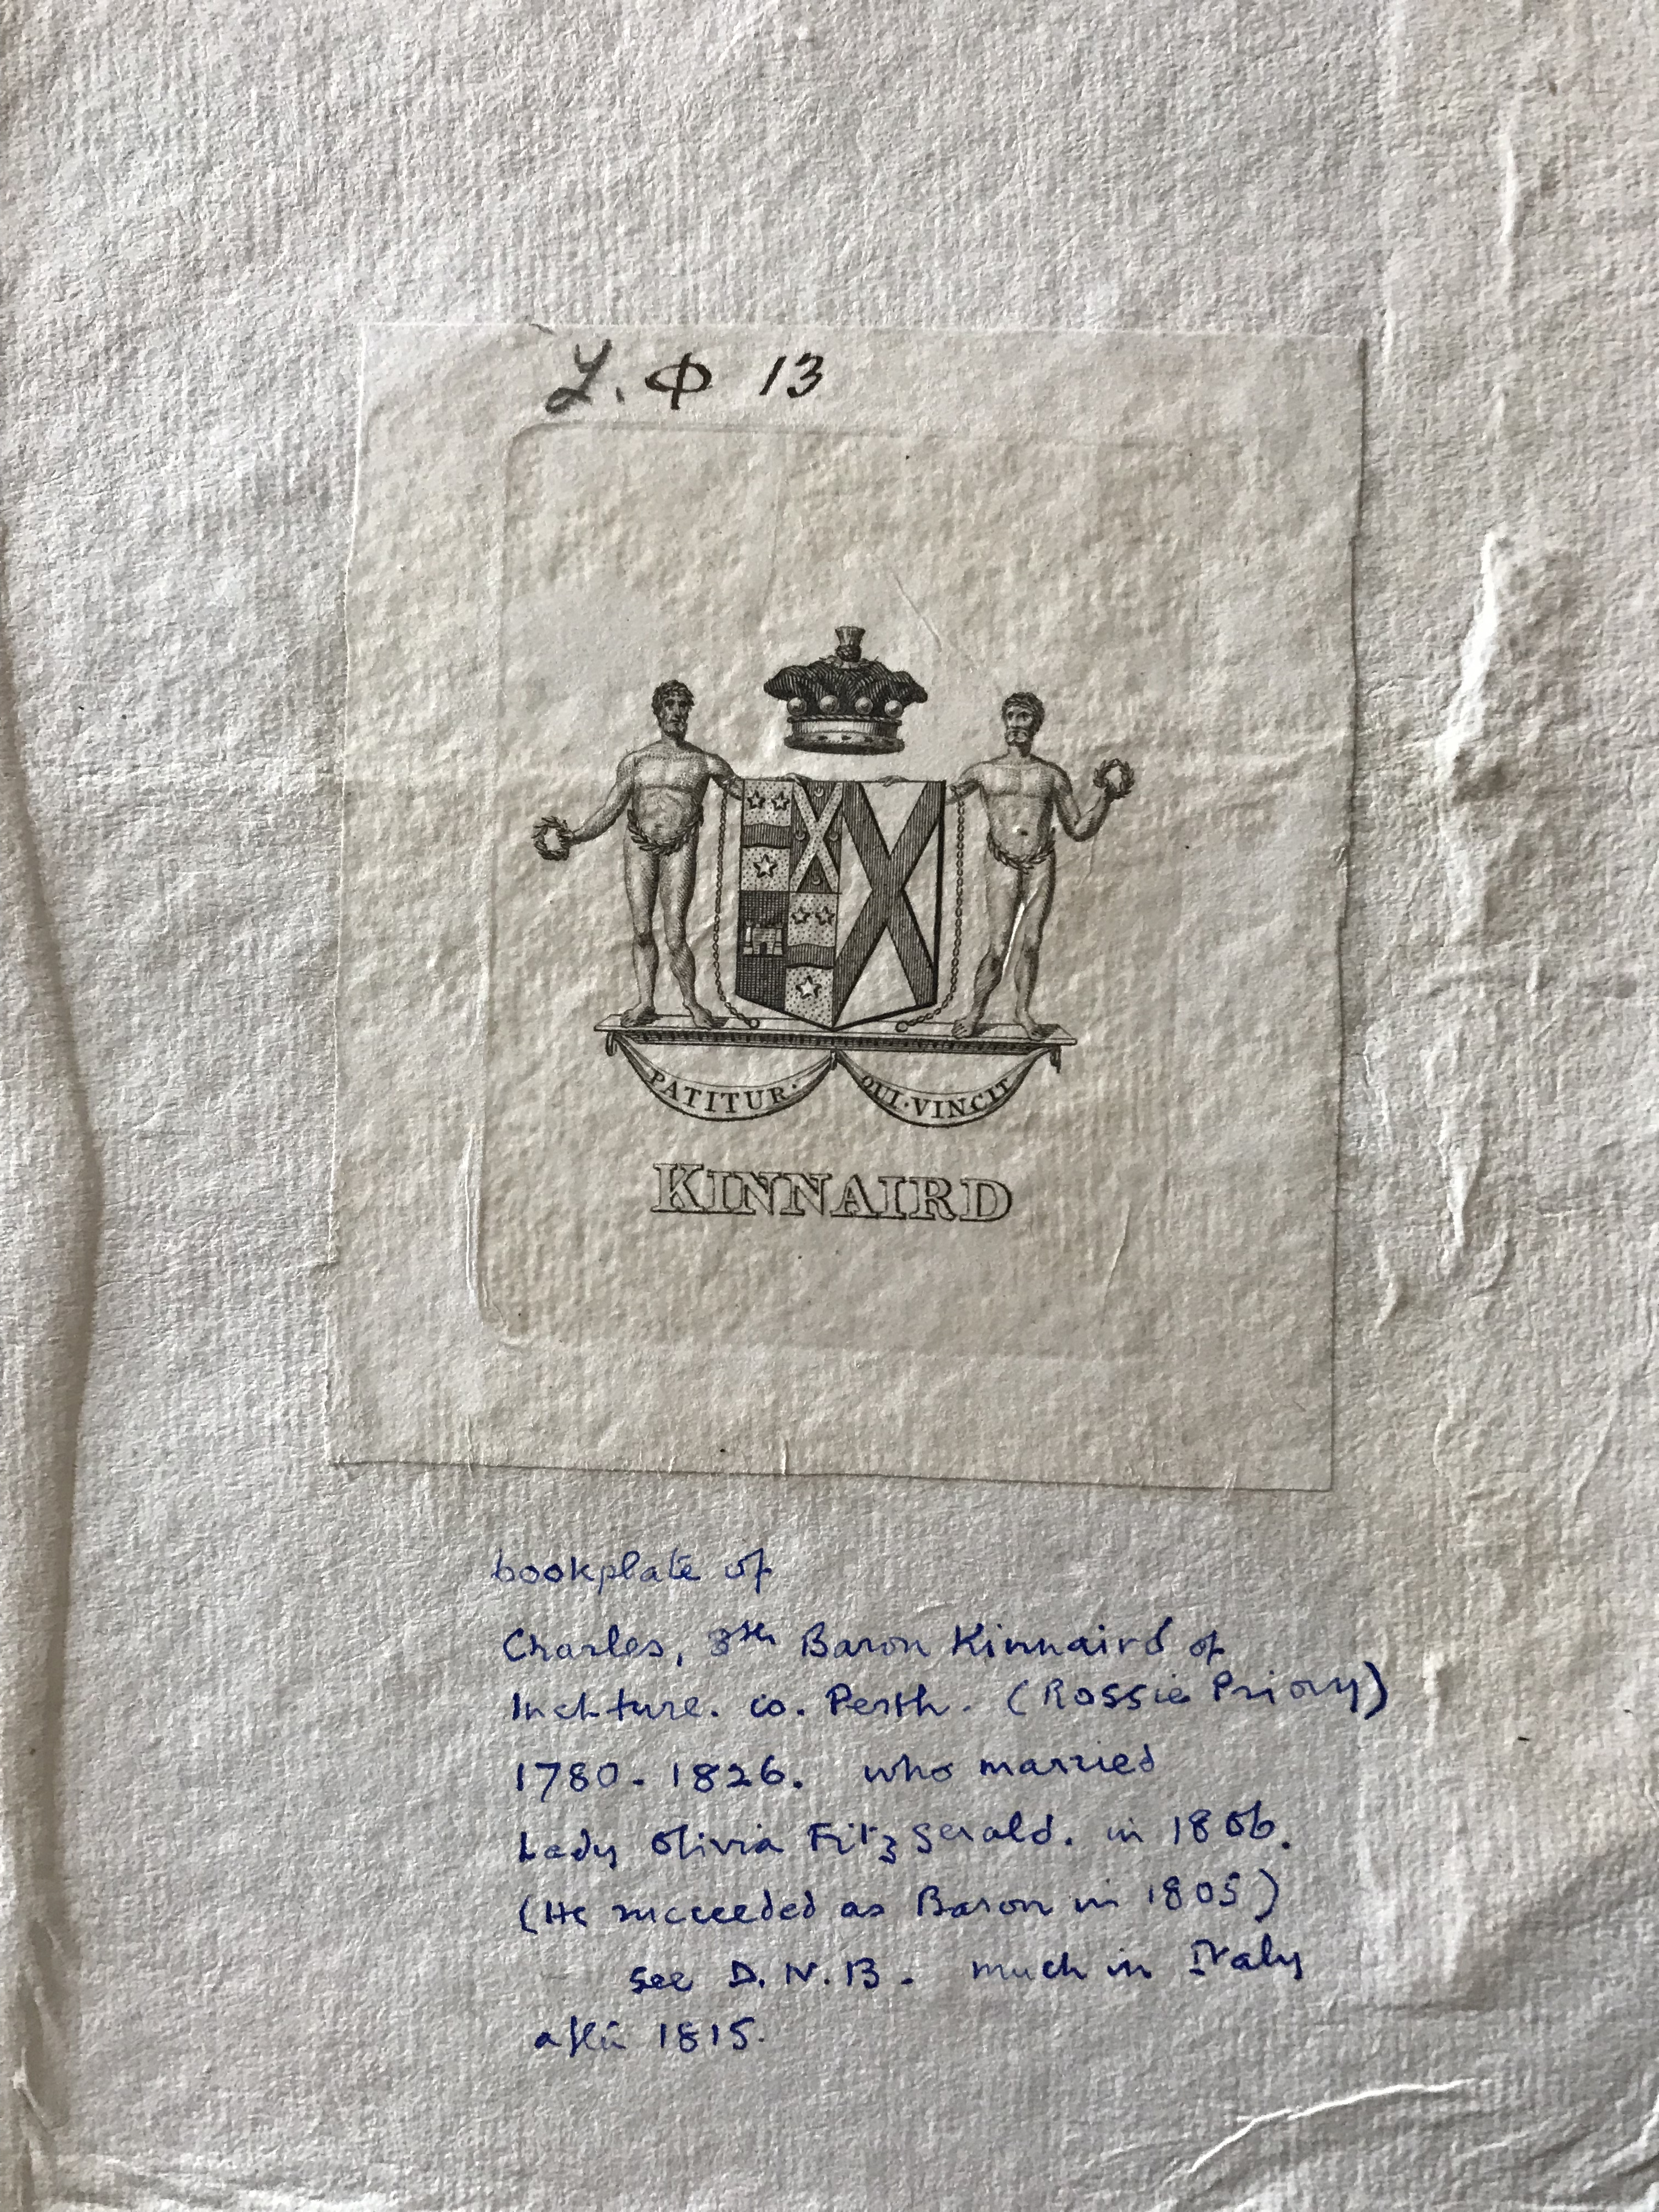 L. Φ 13
PATITUR · QUI · VINCIT
KINNAIRD
bookplate of
Charles, 8th Baron Kinnaird of
Inchture. co. Perth. (Rossie Priory)
1780 - 1826. who married
Lady Olivia FitzGerald. in 1806.
(He succeeded as Baron in 1805)
see D.N.B. much in Italy
after 1815.